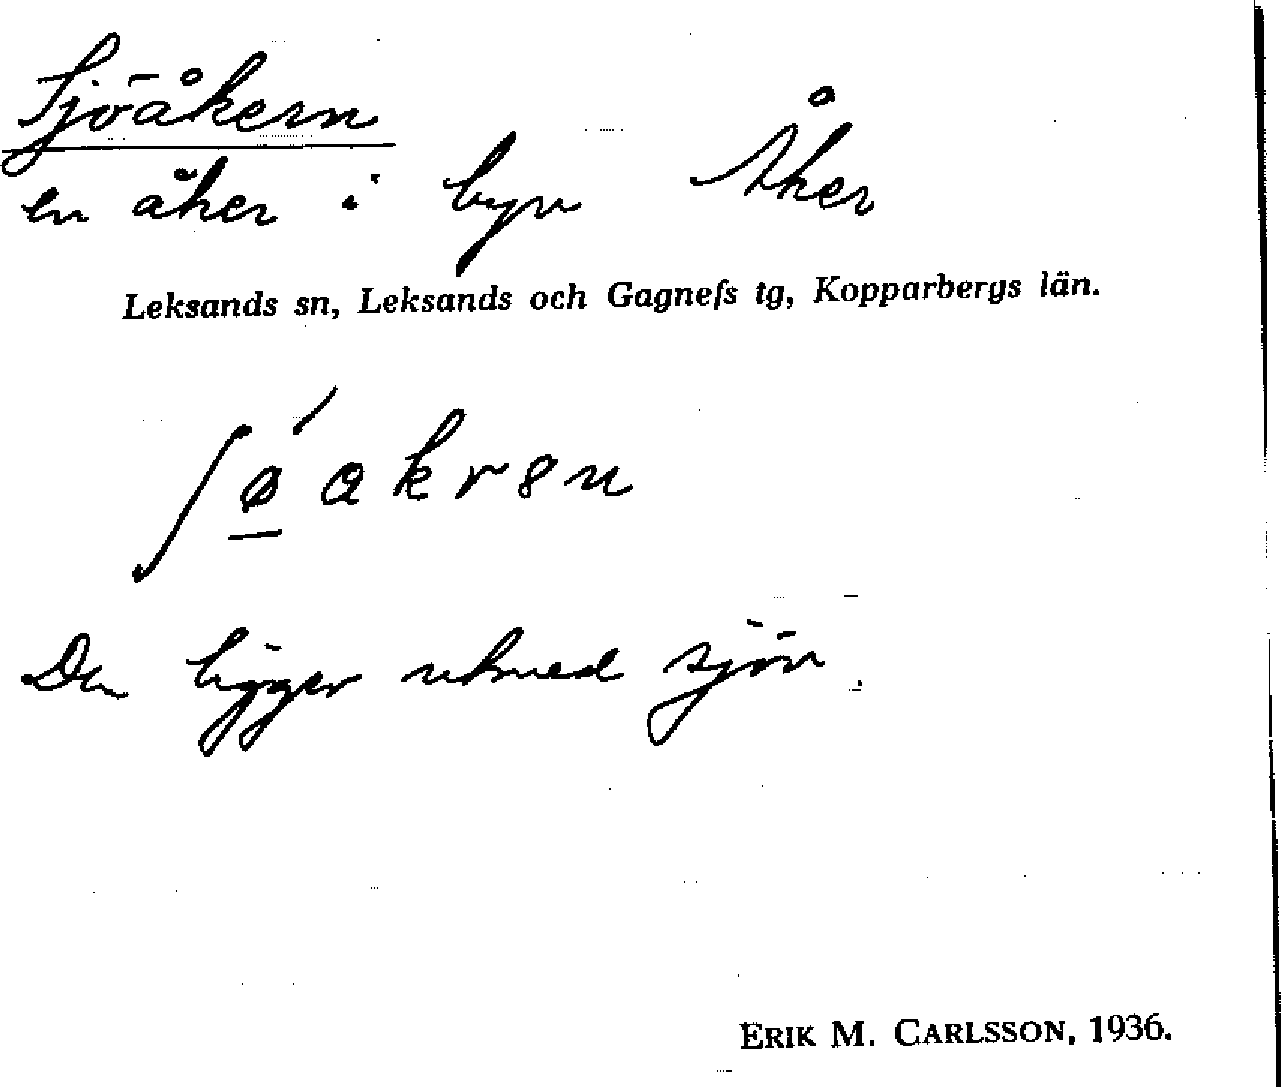 Sjöåkern
en åker i byn Åker
Leksands sn, Leksands och Gagnefs tg, Kopparbergs län.
ʃø´akrən
Den ligger utmed sjön.
ERIK M. CARLSSON, 1936.